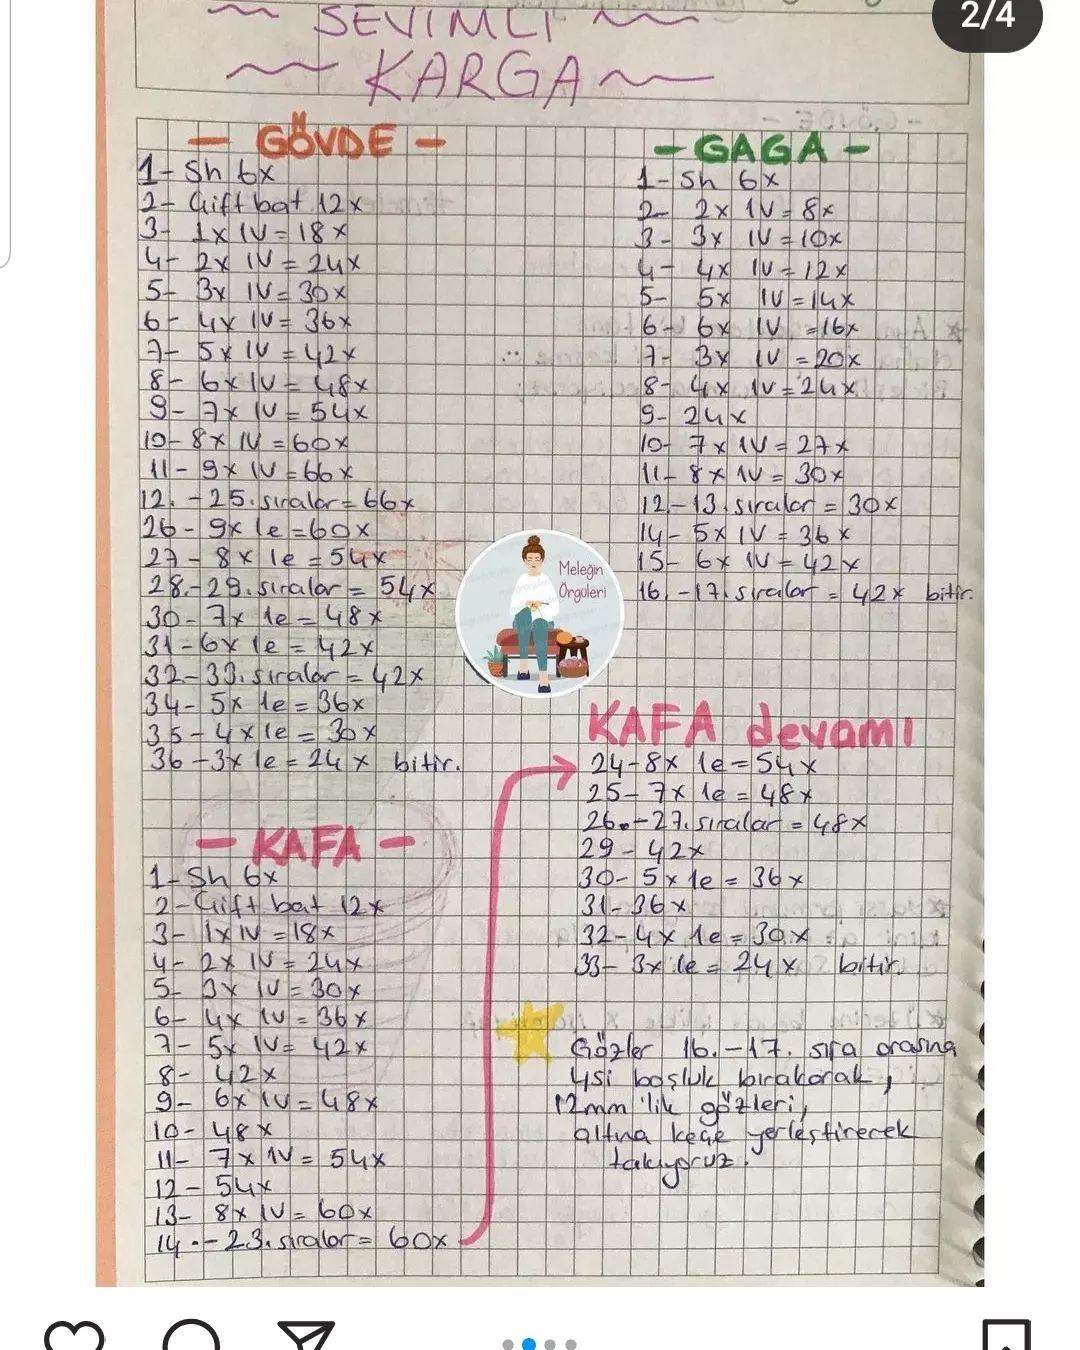 2/4
SEVİMLİ
KARGA
- GÖVDE -
1- Sh 6x
2- Çift bat 12x
3- 1x 1V = 18x
4- 2x 1V = 24x
5- 3x 1V = 30x
6- 4x 1V = 36x
7- 5x 1V = 42x
8- 6x 1V = 48x
9- 7x 1V = 54x
10- 8x 1V = 60x
11- 9x 1V = 66x
12. - 25. sıralar = 66x
26- 9x 1e = 60x
27- 8x 1e = 54x
28.-29. sıralar = 54x
30- 7x 1e = 48x
31- 6x 1e = 42x
32-33. sıralar = 42x
34- 5x 1e = 36x
35- 4x 1e = 30x
36- 3x 1e = 24x bitir.
- GAGA -
1- Sh 6x
2- 2x 1V = 8x
3- 3x 1V = 10x
4- 4x 1V = 12x
5- 5x 1V = 14x
6- 6x 1V = 16x
7- 3x 1V = 20x
8- 4x 1V = 24x
9- 24x
10- 7x 1V = 27x
11- 8x 1V = 30x
12-13. sıralar = 30x
14- 5x 1V = 36x
15- 6x 1V = 42x
16. -17. sıralar = 42x bitir.
Meleğin
Örgüleri
- KAFA -
1- Sh 6x
2- Çift bat 12x
3- 1x 1V = 18x
4- 2x 1V = 24x
5- 3x 1V = 30x
6- 4x 1V = 36x
7- 5x 1V = 42x
8- 42x
9- 6x 1V = 48x
10- 48x
11- 7x 1V = 54x
12- 54x
13- 8x 1V = 60x
14. - 23. sıralar = 60x
KAFA devamı
24- 8x 1e = 54x
25- 7x 1e = 48x
26. -27. sıralar = 48x
29- 42x
30- 5x 1e = 36x
31- 36x
32- 4x 1e = 30x
33- 3x 1e = 24x bitir.
Gözler 16.-17. sıra arasına
4si boşluk bırakarak,
12mm'lik gözleri,
altına keçe yerleştirerek
takıyoruz.